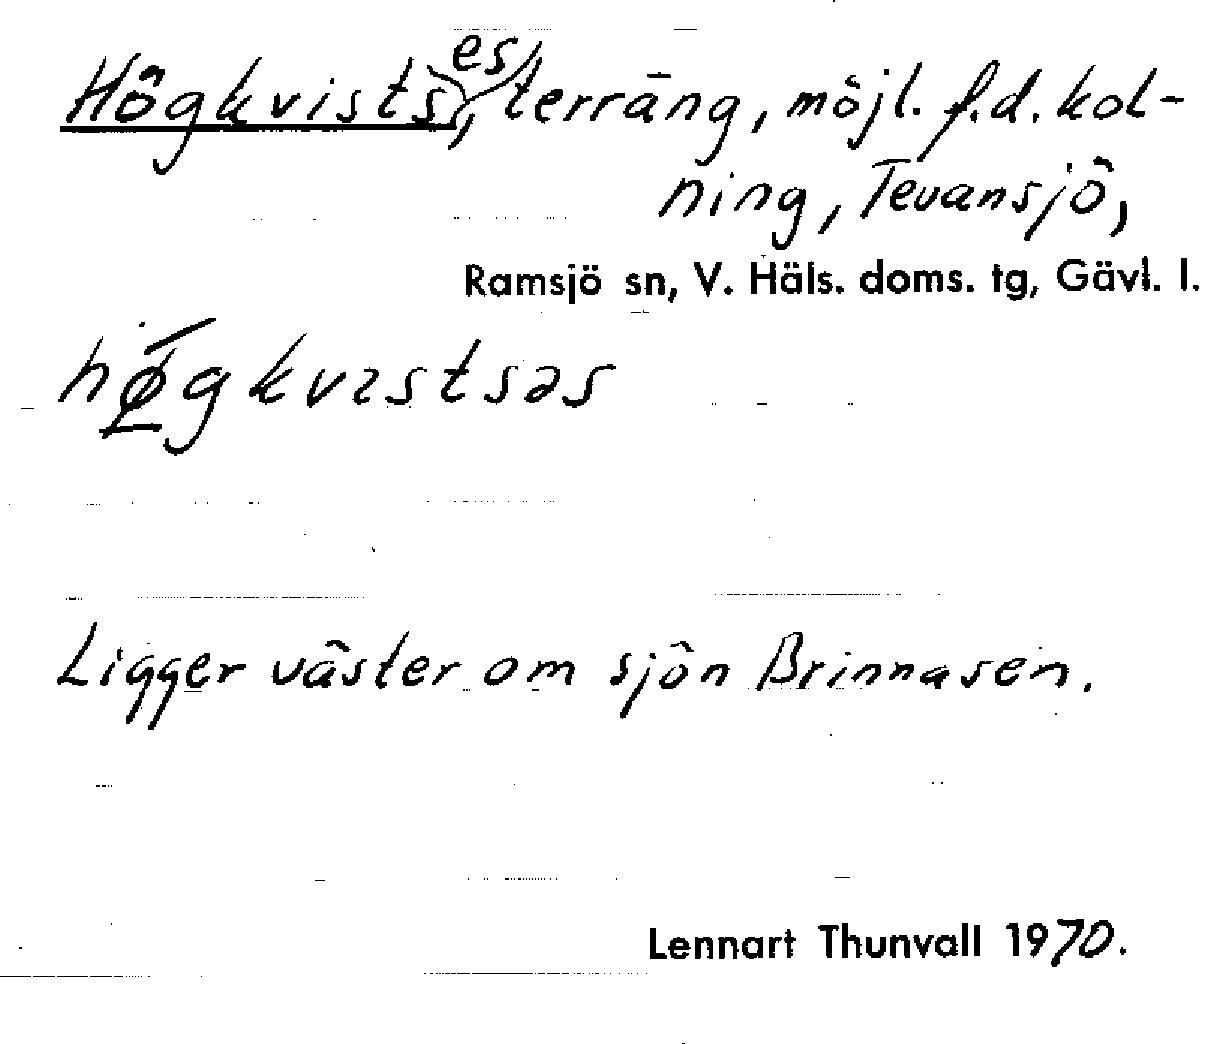 Högkvistses, terräng, möjl. f.d. kol-
ning, Tevansjö,
Ramsjö sn, V. Häls. doms. tg, Gävl. l.
hø̀gkvɪstsəs
Ligger väster om sjön Brinnasen.
Lennart Thunvall 1970.